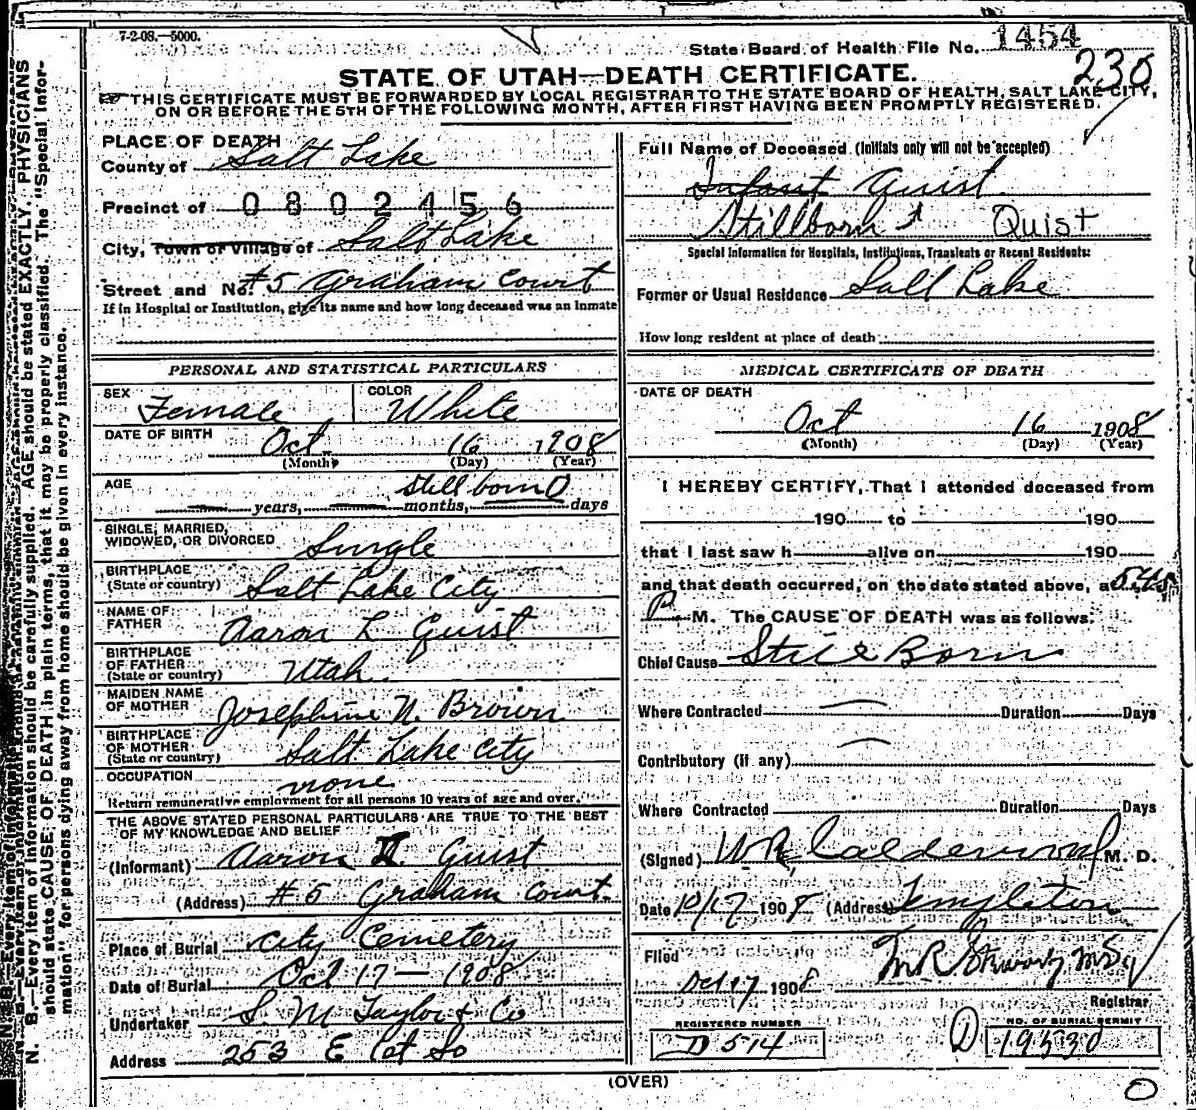 7-2-08.—5000.
State Board of Health File No. 1454
230
STATE OF UTAH—DEATH CERTIFICATE.
THIS CERTIFICATE MUST BE FORWARDED BY LOCAL REGISTRAR TO THE STATE BOARD OF HEALTH, SALT LAKE CITY,
ON OR BEFORE THE 5TH OF THE FOLLOWING MONTH, AFTER FIRST HAVING BEEN PROMPTLY REGISTERED.
PLACE OF DEATH
County of Salt Lake
Precinct of 0802456
City, Town or Village of Salt Lake
Street and No. #5 Graham Court
If in Hospital or Institution, give its name and how long deceased was an inmate
Full Name of Deceased (Initials only will not be accepted)
Infant Quist
Stillborn Quist
Special Information for Hospitals, Institutions, Transients or Recent Residents:
Former or Usual Residence Salt Lake
How long resident at place of death
PERSONAL AND STATISTICAL PARTICULARS
SEX Female
COLOR White
DATE OF BIRTH Oct. 16 1908
(Month) (Day) (Year)
AGE still born 0
years, months, days
SINGLE, MARRIED,
WIDOWED, OR DIVORCED Single
BIRTHPLACE
(State or country) Salt Lake City
NAME OF
FATHER Aaron L Quist
BIRTHPLACE
OF FATHER
(State or country) Utah
MAIDEN NAME
OF MOTHER Josephine N. Brown
BIRTHPLACE
OF MOTHER
(State or country) Salt Lake City
OCCUPATION none
Return remunerative employment for all persons 10 years of age and over.
THE ABOVE STATED PERSONAL PARTICULARS ARE TRUE TO THE BEST
OF MY KNOWLEDGE AND BELIEF
(Informant) Aaron L Quist
(Address) #5 Graham Court.
Place of Burial City Cemetery
Date of Burial Oct 17 — 1908
Undertaker S. M Taylor & Co
Address 253 E 1st So
MEDICAL CERTIFICATE OF DEATH
DATE OF DEATH
Oct 16 1908
(Month) (Day) (Year)
I HEREBY CERTIFY, That I attended deceased from
190 to 190
that I last saw h alive on 190
and that death occurred, on the date stated above, at 5:45
P M. The CAUSE OF DEATH was as follows:
Chief Cause Still Born
Where Contracted Duration Days
Contributory (if any)
Where Contracted Duration Days
(Signed) W R Calderwood M. D.
Date 10/17 1908 (Address) Templeton
Filed
Oct 17 1908
Registrar
REGISTERED NUMBER
D 514
NO. OF BURIAL PERMIT
19530
(OVER)
N. B.—Every item of information should be carefully supplied. AGE should be stated EXACTLY. PHYSICIANS
should state CAUSE OF DEATH in plain terms, that it may be properly classified. The "Special Infor-
mation" for persons dying away from home should be given in every instance.